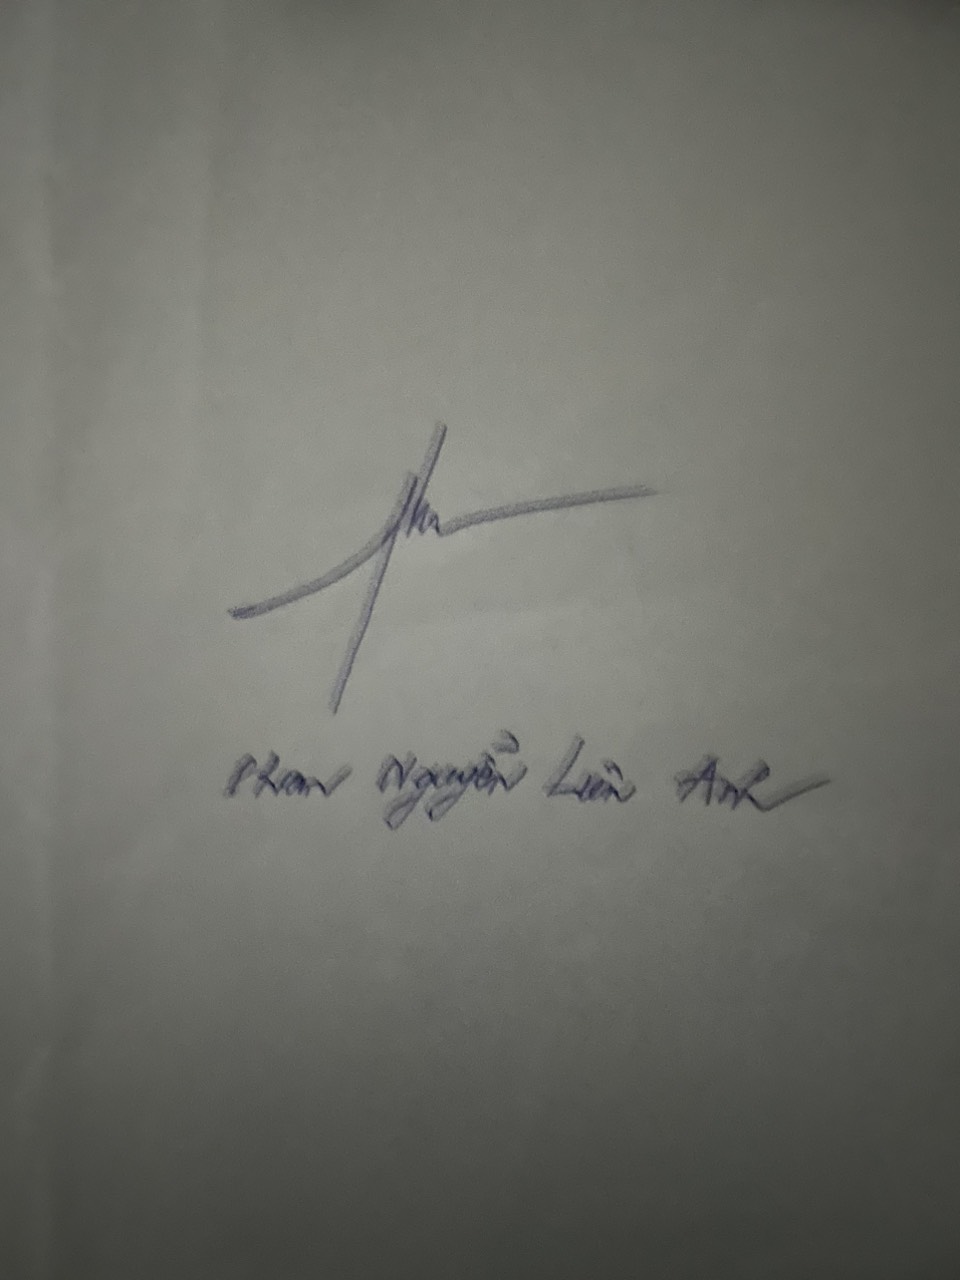 Phan Nguyễn Liên Anh